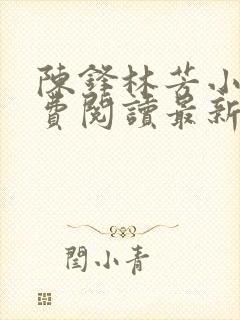 陳鋒林芳小
費閱讀最新
閏小青